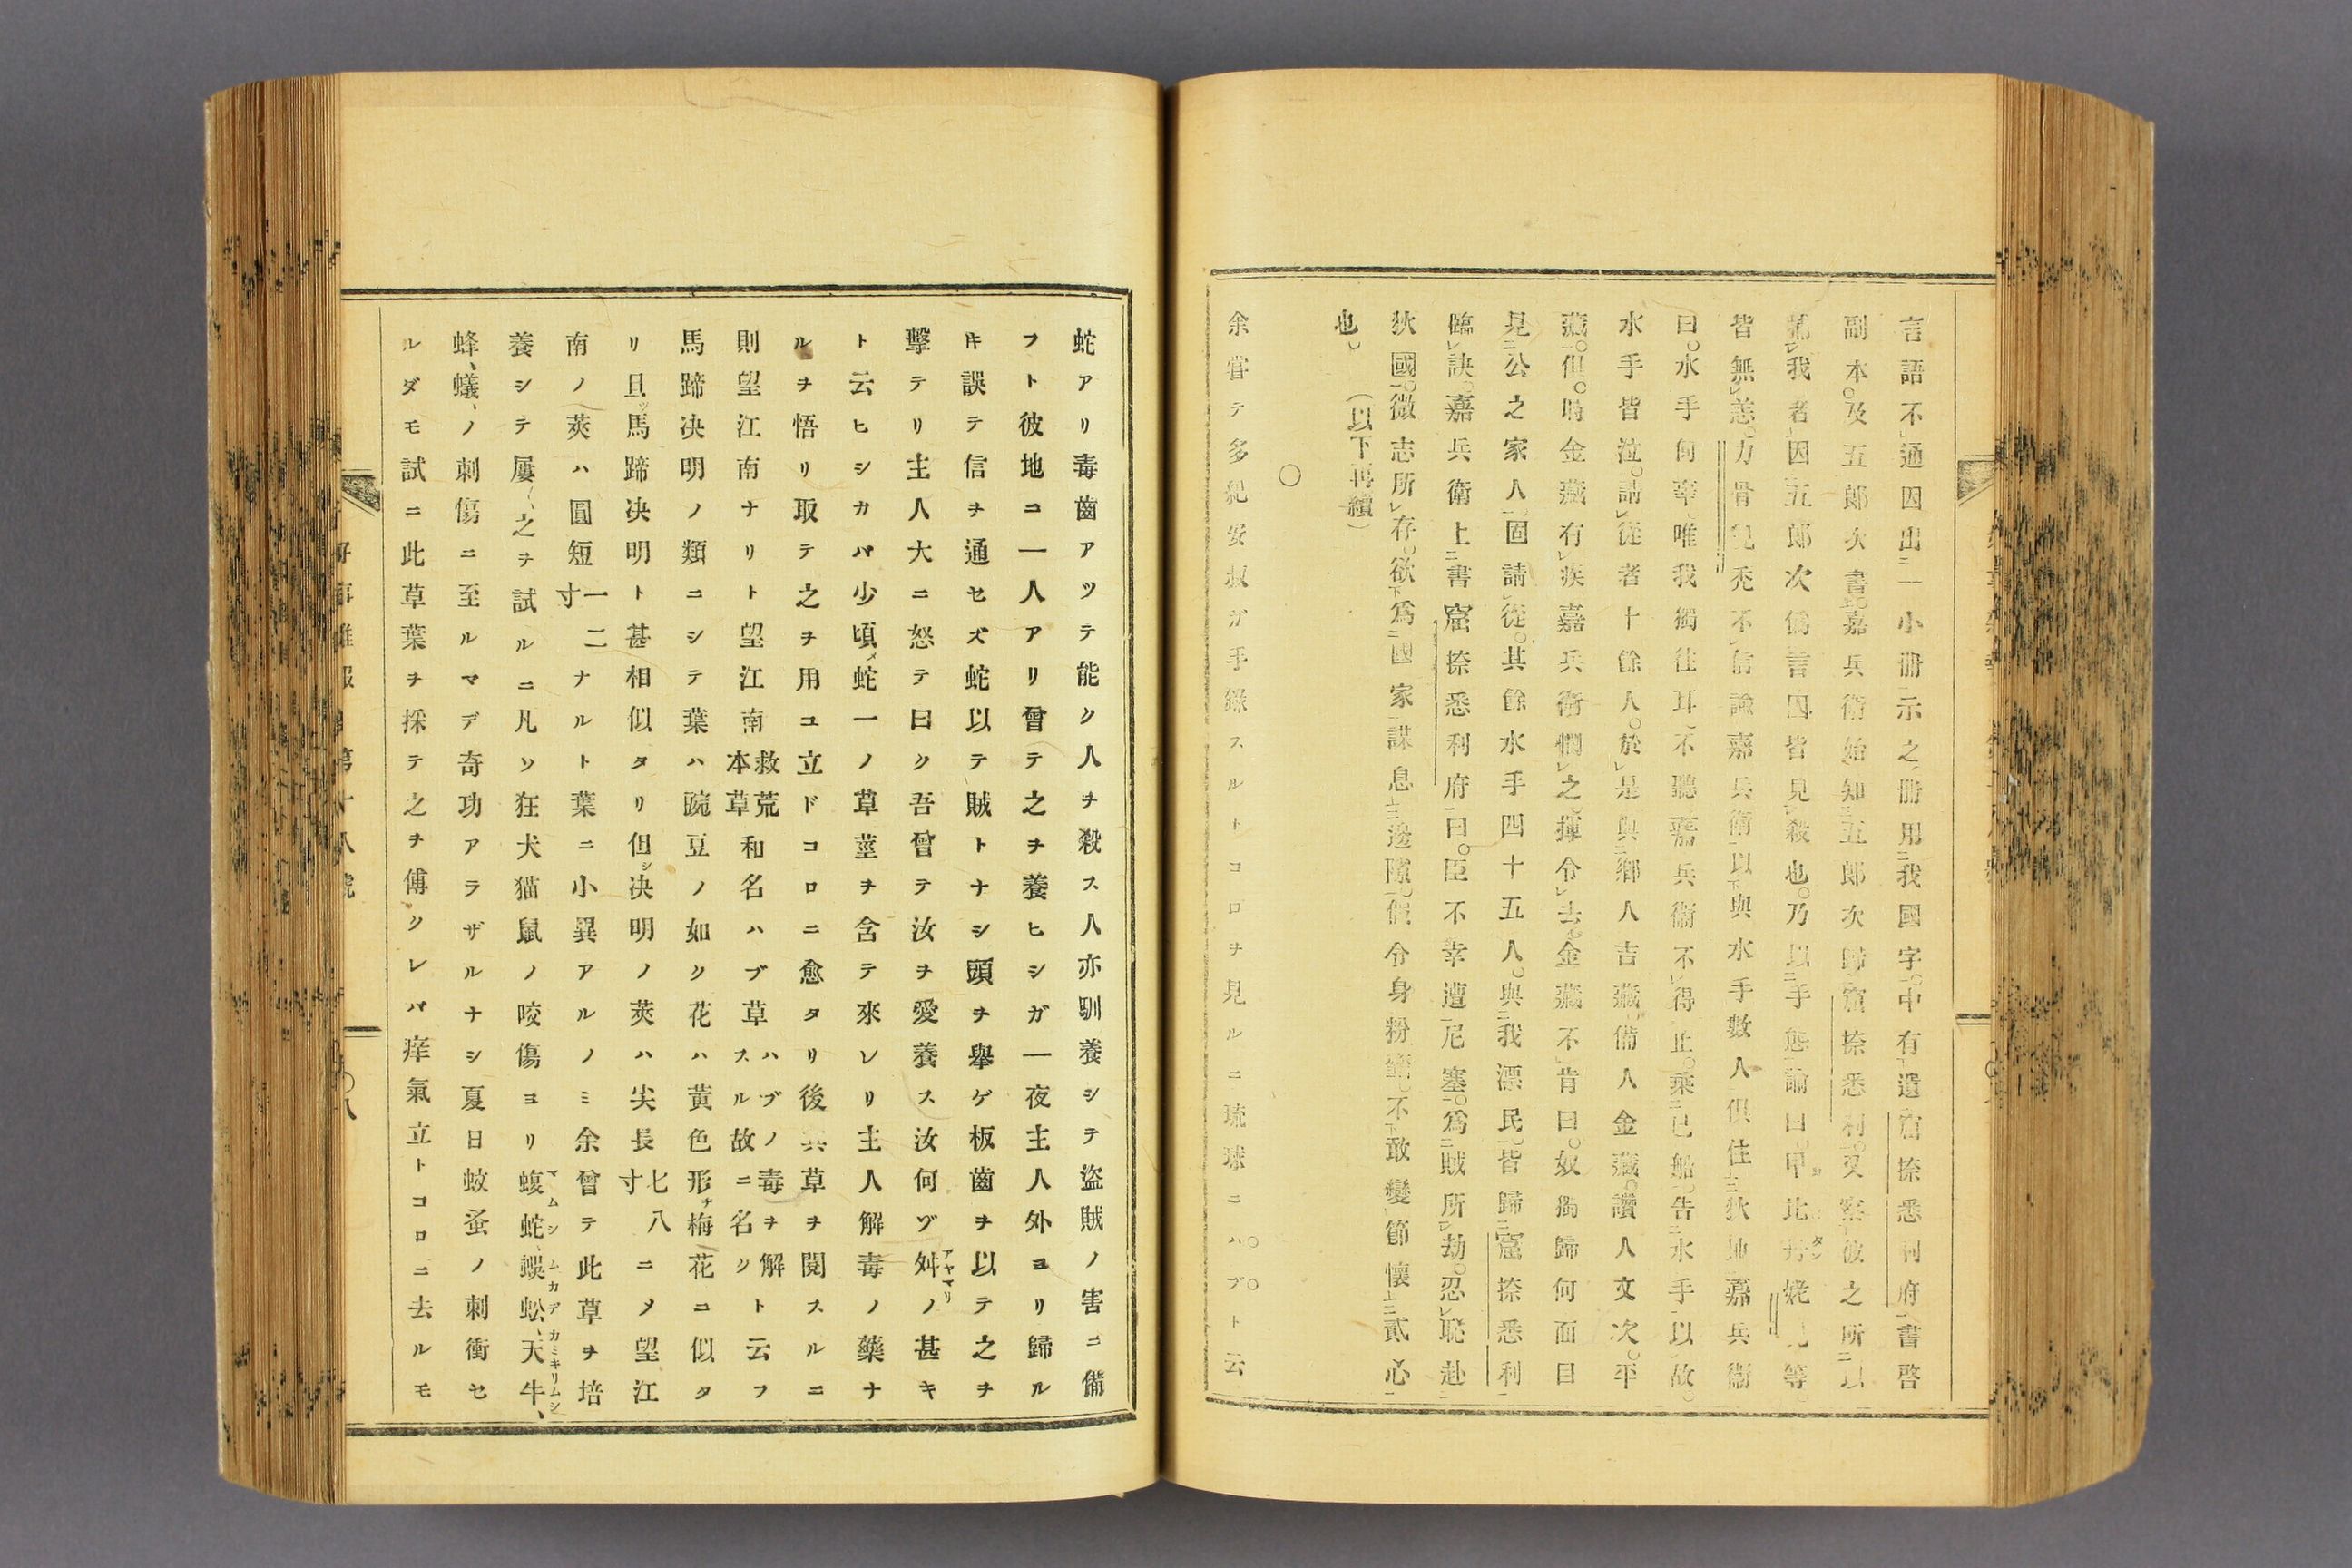 言語不通因出一小冊示之冊用我國字。中有遣窟捺悉利府書啓
副本。及五郎次書。嘉兵衛始知五郎次歸窟捺悉利。又察彼之所以
我者因五郎次僞言因皆見殺也。乃以手態諭曰。甲比丹姥等
皆無恙。力骨兒禿不信諭嘉兵衛以與水手數人倶住狄地嘉兵衛
曰。水手何辜唯我獨往耳不聽嘉兵衛不得止。乘已船告水手以故。
水手皆泣。請從者十餘人。於是與鄉人吉藏備人金藏。讃人文次。平
藏。但。時金藏有疾嘉兵衛憫之揮令去。金藏不肯曰。奴獨歸何面目
見公之家人固請從。其餘水手四十五人。與我漂民皆歸窟捺悉利
臨訣嘉兵衛上書窟捺悉利府曰。臣不幸遭厄塞。爲賊所劫。忍恥赴
狄國。微志所存。欲爲國家謀息邊隙。假令身粉韲。不敢變節懷貳心
也。(以下再續)
○
余嘗テ多紀安叔ガ手錄スルトコロヲ見ルニ琉球ニハブト云
蛇アリ毒齒アツテ能ク人ヲ殺ス人亦馴養シテ盜賊ノ害ニ備
フト彼地ニ一人アリ曾テ之ヲ養ヒシガ一夜主人外ヨリ歸ル
キ誤テ信ヲ通セズ蛇以テ賊トナシ頭ヲ擧ゲ板齒ヲ以テ之ヲ
擊テリ主人大ニ怒テ曰ク吾曾テ汝ヲ愛養ス汝何ヅ舛アヤマリノ甚キ
ト云ヒシカバ少頃メ蛇一ノ草莖ヲ含テ來レリ主人解毒ノ藥ナ
ルヲ悟リ取テ之ヲ用ユ立ドコロニ愈タリ後其草ヲ閱スルニ
則望江南ナリト望江南救荒本草和名ハブ草ハブノ毒ヲ解スル故ニ名クト云フ
馬蹄决明ノ類ニシテ葉ハ豌豆ノ如ク花ハ黃色形チ梅花ニ似タ
リ且ツ馬蹄决明ト甚相似タリ但シ决明ノ莢ハ尖長七八寸ニメ望江
南ノ莢ハ圓短一二寸ナルト葉ニ小異アルノミ余曾テ此草ヲ培
養シテ屢〱之ヲ試ルニ凡ソ狂犬猫鼠ノ咬傷ヨリ蝮蛇マムシ、蜈蚣ムカデ、天牛カミキリムシ、
蜂、蟻、ノ刺傷ニ至ルマデ奇功アラザルナシ夏日蚊蚤ノ刺衝セ
ルダモ試ニ此草葉ヲ採テ之ヲ傅クレバ痒氣立トコロニ去ルモ
第十八號